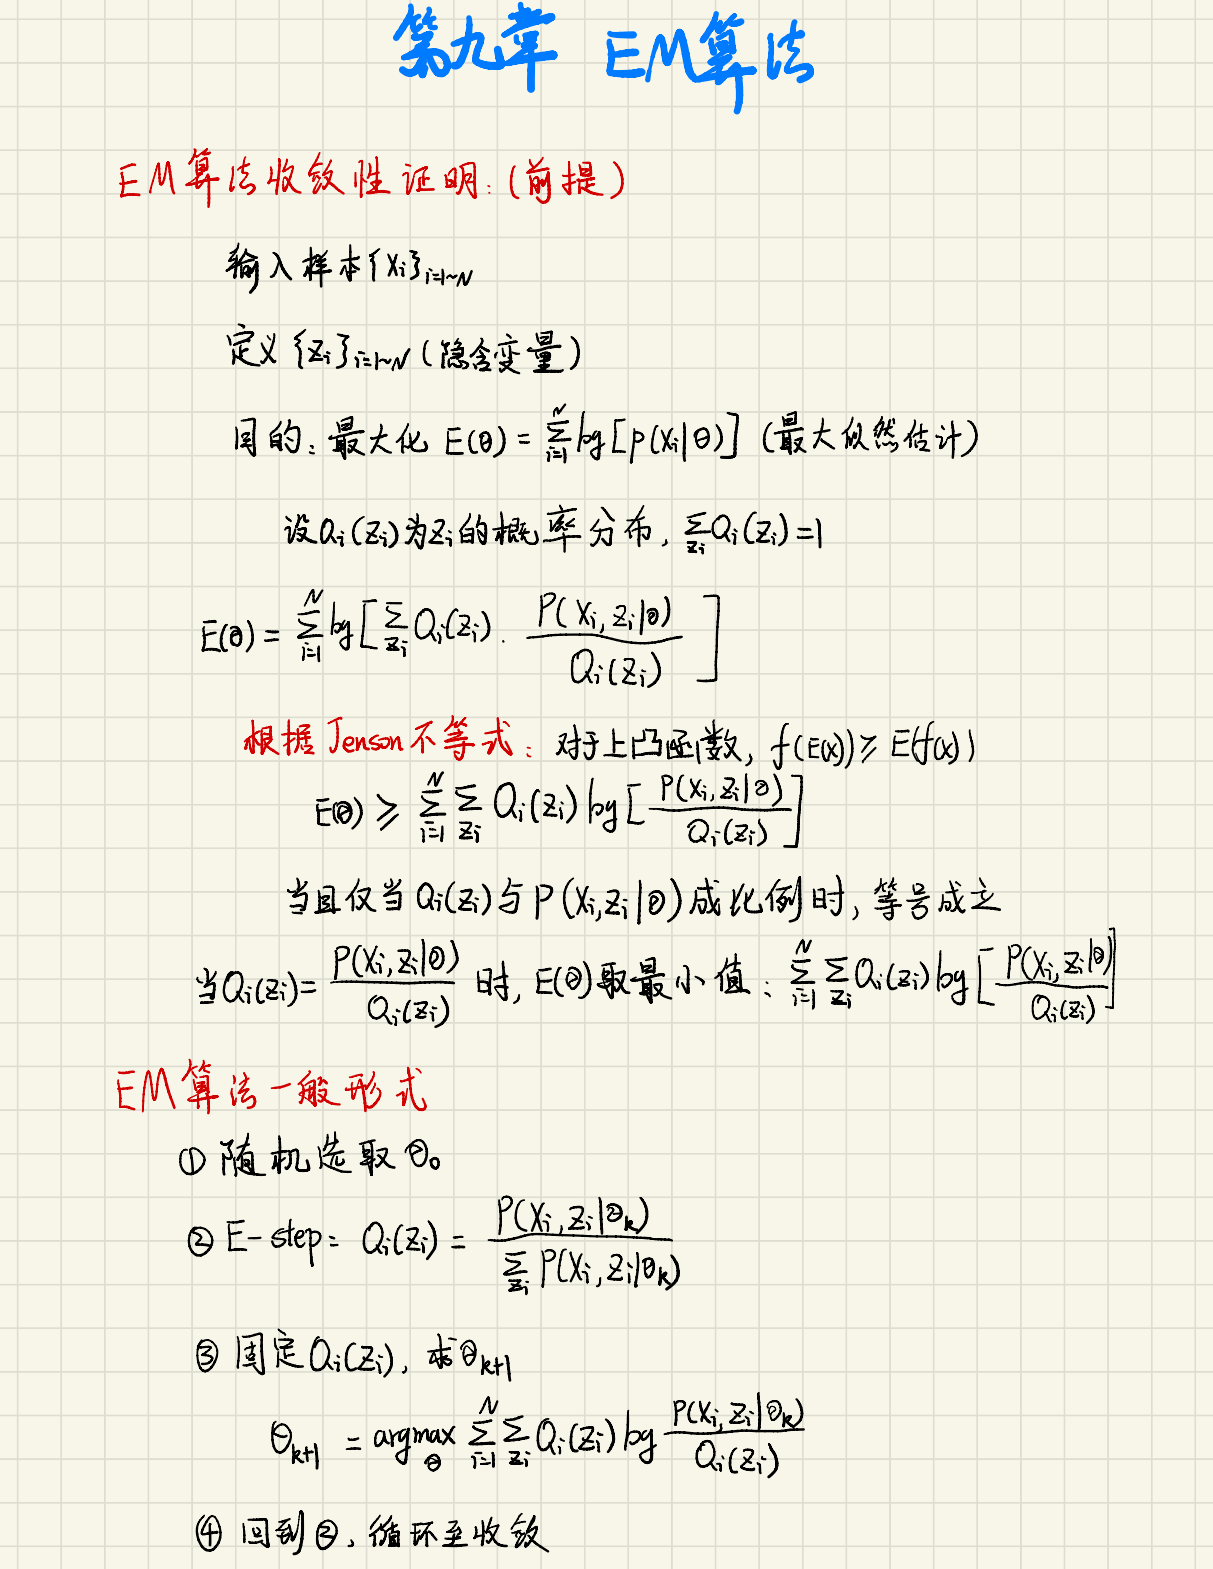 第九章 EM算法
EM算法收敛性证明:(前提)
输入样本{Xi}i=1~N
定义{Zi}i=1~N(隐含变量)
目的:最大化 E(θ) = ∑_{i=1}^{N} log[p(Xi|θ)] (最大似然估计)
设Qi(Zi)为Zi的概率分布, ∑_{Zi} Qi(Zi)=1
E(θ) = ∑_{i=1}^{N} log[∑_{Zi} Qi(Zi) · P(Xi, Zi|θ) / Qi(Zi)]
根据Jenson不等式: 对于上凸函数, f(E(x)) ≥ E(f(x))
E(θ) ≥ ∑_{i=1}^{N} ∑_{Zi} Qi(Zi) log[P(Xi, Zi|θ) / Qi(Zi)]
当且仅当 Qi(Zi)与P(Xi,Zi|θ)成比例时, 等号成立
当Qi(Zi)= P(Xi,Zi|θ) / Qi(Zi) 时, E(θ)取最小值: ∑_{i=1}^{N} ∑_{Zi} Qi(Zi) log[P(Xi,Zi|θ) / Qi(Zi)]
EM算法一般形式
① 随机选取 θ₀
② E-step: Qi(Zi) = P(Xi, Zi|θk) / ∑_{Zi} P(Xi, Zi|θk)
③ 固定Qi(Zi), 求θk+1
θk+1 = argmax_θ ∑_{i=1}^{N} ∑_{Zi} Qi(Zi) log P(Xi, Zi|θk) / Qi(Zi)
④ 回到②, 循环至收敛